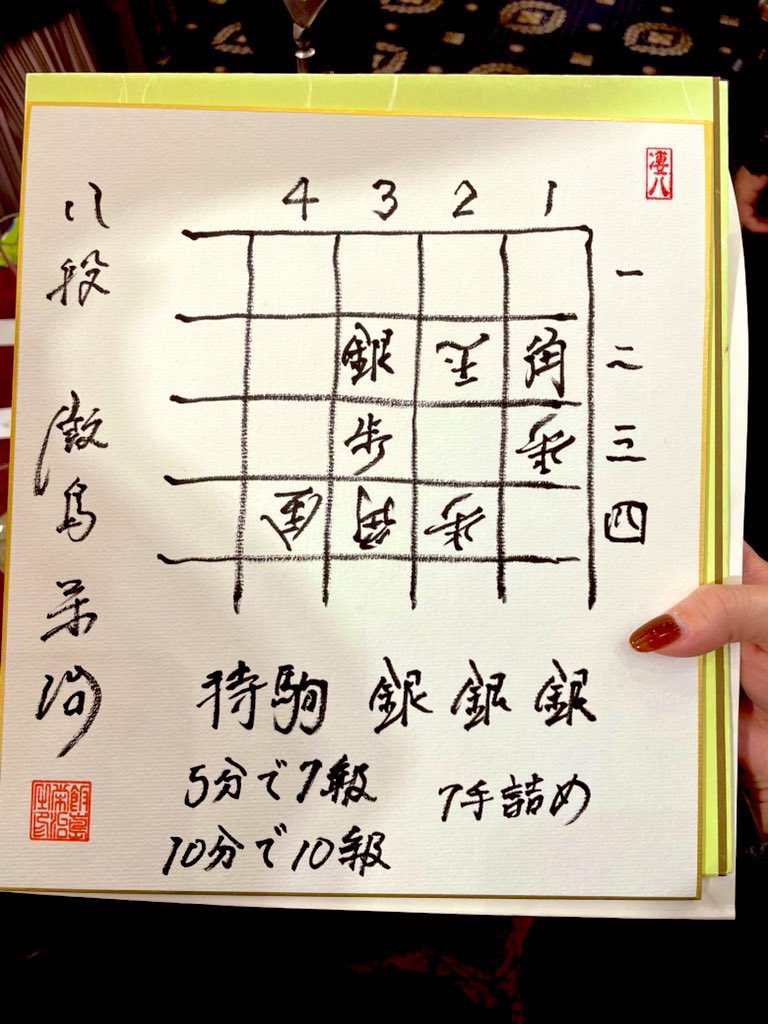 4 3 2 1
一
二
三
四
銀 玉 角
歩 歩
馬 角 歩
持駒 銀 銀 銀
5分で7級
7手詰め
10分で10級
八段 飯島栄治